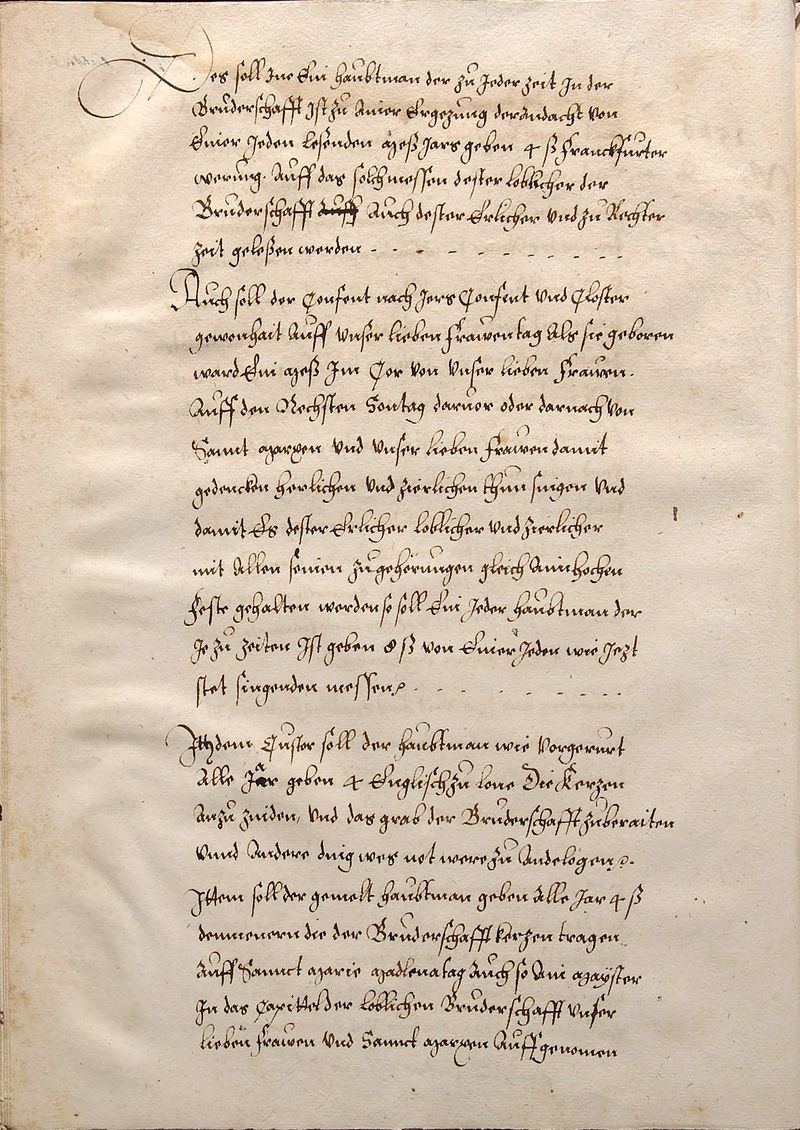 Des soll Ine Ein haubtman der zu Jeder zeit In der
Bruderschafft Ist zu Ainer Ergezung der Andacht von
Einer Jeden lesenden Meß Jars geben 4 ß Franckfurter
werung. Auff das solch messen dester loblicher der
Bruderschafft auff Auch dester Erlicher vnd zu Rechter
Zeit geleßen werden
Auch soll der Confent nach Jers Confint vnd Closter
gewonhait Auff vnser lieben Frawen tag Als sie geboren
ward Ein Meß Im Cor von vnser lieben Frawen.
Auff den Nechsten Sontag daruor oder darnach von
Sannt Marxen vnd vnser lieben Frawen damit
gedencken herlichen vnd Zierlichen thun singen vnd
damit Es dester Erlicher loblicher vnd Zierlicher
mit Allen seinen Zugehörungen gleich Aim hochen
Feste gehalten werden so soll Ein Jeder haubtman der
Je zu Zeiten Ist geben 8 ß von Einer Jeden wie Jezt
stet singenden messen
dem Custor soll der haubtman wie vorgerurt
Alle Jar geben 4 Englisch zu lone Die Kerzen
Anzuzinden, vnd das grab der Bruderschafft zuberaiten
vnnd Andere ding wes not were zu Andelogen
Ittem soll der gemelt haubtman geben Alle Jar 4 ß
die der Bruderschafft kerzen tragen
Auff Sannct Marie Madlena tag Auch so Ain Mayster
In das Capittel der loblichen Bruderschafft vnser
lieben Frawen vnd Sannct Marxen Auffgenomen